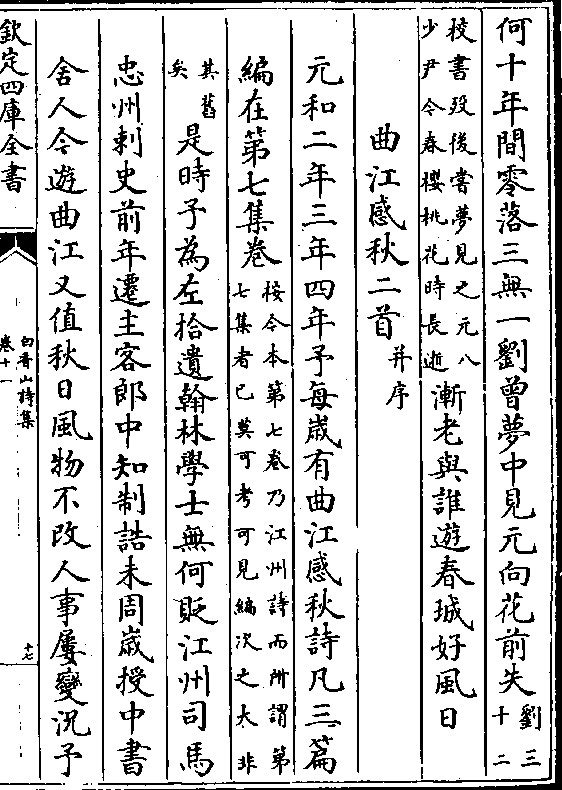 何十年間零落三無一劉曾夢中見元向花前失劉三十二
校書歿後嘗夢見之元八少尹今春櫻桃花時長逝漸老與誰遊春城好風日
曲江感秋二首并序
元和二年三年四年予每歲有曲江感秋詩凡三篇
編在第七集卷按今本第七卷乃江州詩而所謂第七集者已莫可考可見編次之大非
其舊矣是時予為左拾遺翰林學士無何貶江州司馬
忠州刺史前年遷主客郎中知制誥未周歲授中書
舍人今遊曲江又值秋日風物不改人事屢變況予
欽定四庫全書
白香山詩集
卷十一
十七